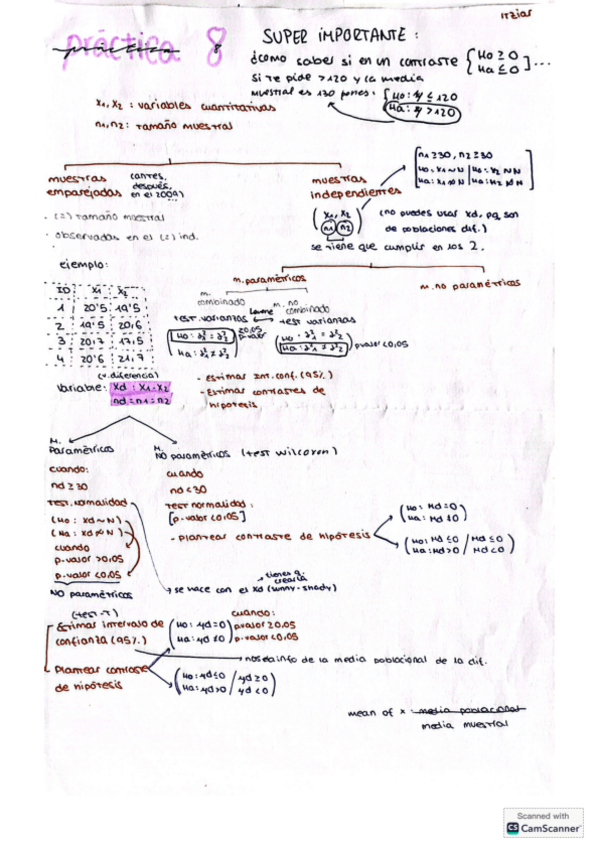 Itziar
práctica 8
SUPER IMPORTANTE:
¿como saber si en un contraste { H0 ≥ 0
Ha ≤ 0 } ...
si te pide >120 y la media
muestral es 130 pones: { H0: μ ≤ 120
Ha: μ > 120
x1, x2 : variables cuantitativas
n1, n2: tamaño muestral
muestras emparejadas (antes, después, en el 2009)
· (=) tamaño muestral
· observadas en el (=) ind.
muestras independientes
[ n1 ≥ 30, n2 ≥ 30
H0: x1 ~ N | H0: x2 ~ N
Ha: x1 ≁ N | Ha: x2 ≁ N ]
( x1, x2
n1 n2 )
(no puedes usar xd, pq son
de poblaciones dif.)
se tiene que cumplir en los 2.
ejemplo:
ID x1 x2
1 20'5 19'5
2 19'5 20,6
3 20,7 17,5
4 20'6 21,7
(v. diferencia)
variable: xd : x1 - x2
nd = n1 = n2
m. paramétricos
m. no paramétricos
m. combinado
Levene
m. no combinado
test varianzas
test varianzas
p valor
p valor < 0,05
- Estimar Int. conf. (95%)
- Estimar contrastes de
hipótesis
M. Paramétricos
cuando:
nd ≥ 30
test normalidad
(H0: xd ~ N)
(Ha: xd ≁ N)
cuando
p-valor > 0,05
p-valor < 0,05
NO paramétricos
M. NO paramétricos (test wilcoxon)
cuando
nd < 30
test normalidad:
[p-valor < 0,05]
- plantear contraste de hipótesis
( H0: Md = 0
Ha: Md ≠ 0 )
( H0: Md ≤ 0 / Md ≥ 0
Ha: Md > 0 / Md < 0 )
tienes q. crearla
→ se hace con el xd (sunny-shady)
(test-T)
- Estimar intervalo de
confianza (95%)
cuando:
( H0: μd = 0) p valor ≥ 0,05
Ha: μd ≠ 0) p-valor < 0,05
→ nos da info de la media poblacional de la dif.
- Plantear contraste
de hipótesis
( H0: μd ≤ 0 / μd ≥ 0
Ha: μd > 0 / μd < 0 )
mean of x: media poblacional
media muestral
Scanned with
CS CamScanner